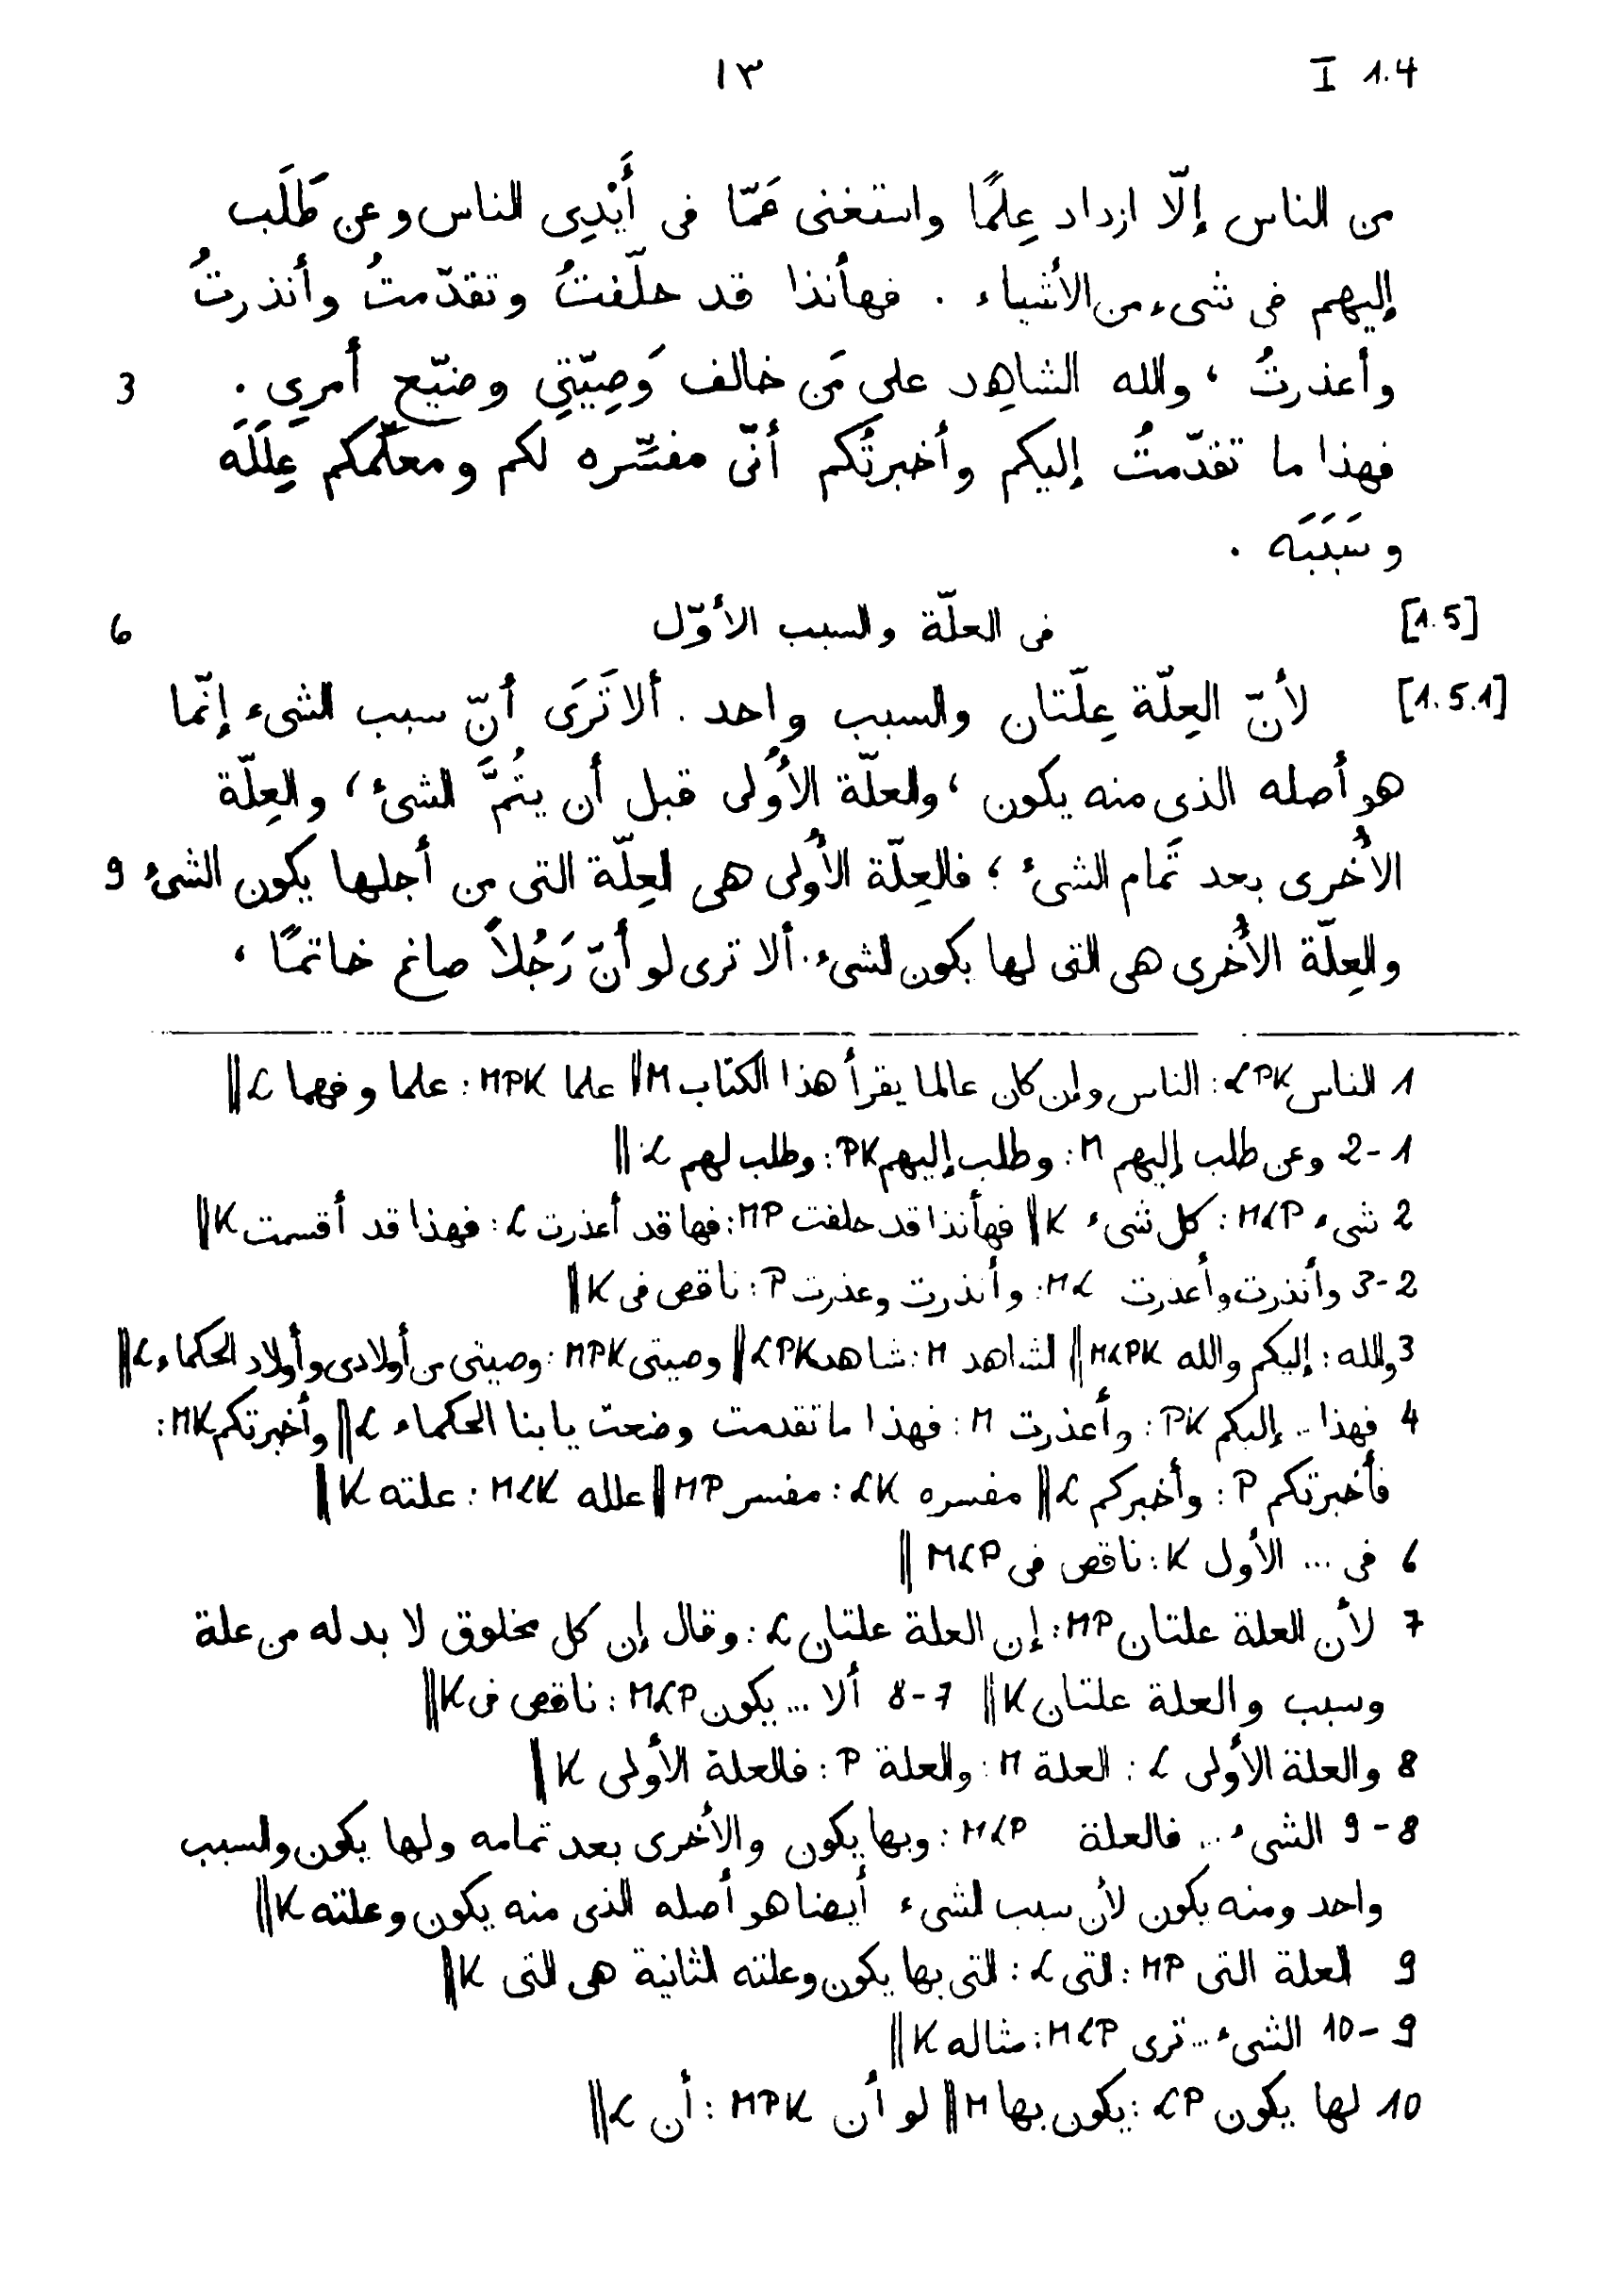 I 1.4 ١٣
من الناس إلّا ازداد عِلمًا واستغنى عَمّا فى أَيْدِى الناس وعن طَلَب
إليهم فى شىء من الأشياء . فهأنذا قد حلّفتُ وتقدّمتُ وأنذرتُ
وأعذرتُ ، والله الشاهِد على مَن خالف وَصِيّتِى وضيّع أمرِى . 3
فهذا ما تقدّمتُ إليكم وأخبرتُكم أنّى مفسِّره لكم ومعلّمكم عِلَلَه
وسَبَبَه .
[1.5] فى العلّة والسبب الأوّل 6
[1.5.1] لأنّ العِلّة عِلّتان والسبب واحد . ألا تَرَى أنّ سبب الشىء إنّما
هو أصله الذى منه يكون ، والعلّة الأُولى قبل أن يتُمَّ الشىء ، والعِلّة
الأُخرى بعد تَمام الشىء ؛ فالعِلّة الأُولى هى العِلّة التى من أجلها يكون الشىء 9
والعِلّة الأُخرى هى التى لها يكون الشىء . ألا ترى لو أنّ رَجُلاً صاغ خاتمًا ،
1 الناس LPK : الناس وإن كان عالما يقرأ هذا الكتاب M || علما MPK : علما وفهما L ||
2-1 وعن طلب إليهم M : وطلب إليهم PK : وطلب لهم L ||
2 شىء MLP : كل شىء K || فهأنذا قد حلفت MP : فها قد أعذرت L : فهذا قد أقسمت K ||
3-2 وأنذرت وأعذرت ML : وأنذرت وعذرت P : ناقص فى K ||
3 والله : إليكم والله MLPK || الشاهد M : شاهد LPK || وصيتى MPK : وصيتى من أولادى وأولاد الحكماء L ||
4 فهذا .. إليكم PK : وأعذرت M : فهذا ما تقدمت وضعت يا بنا الحكماء L || وأخبرتكم MK :
فأخبرتكم P : وأخبركم L || مفسره LK : مفسر MP || علله MLK : علته K ||
6 فى ... الأول K : ناقص فى MLP ||
7 لأن العلة علتان MP : إن العلة علتان L : وقال إن كل مخلوق لا بد له من علة
وسبب والعلة علتان K || 8-7 ألا ... يكون MLP : ناقص فى K ||
8 والعلة الأولى L : العلة M : والعلة P : فالعلة الأولى K ||
9-8 الشىء ... فالعلة MLP : وبها يكون والأخرى بعد تمامه ولها يكون والسبب
واحد ومنه يكون لأن سبب الشىء أيضا هو أصله الذى منه يكون وعلته K ||
9 العلة التى MP : التى L : التى بها يكون وعلته الثانية هى التى K ||
10-9 الشىء ... ترى MLP : مثاله K ||
10 لها يكون LP : يكون بها M || لو أن MPK : أن L ||